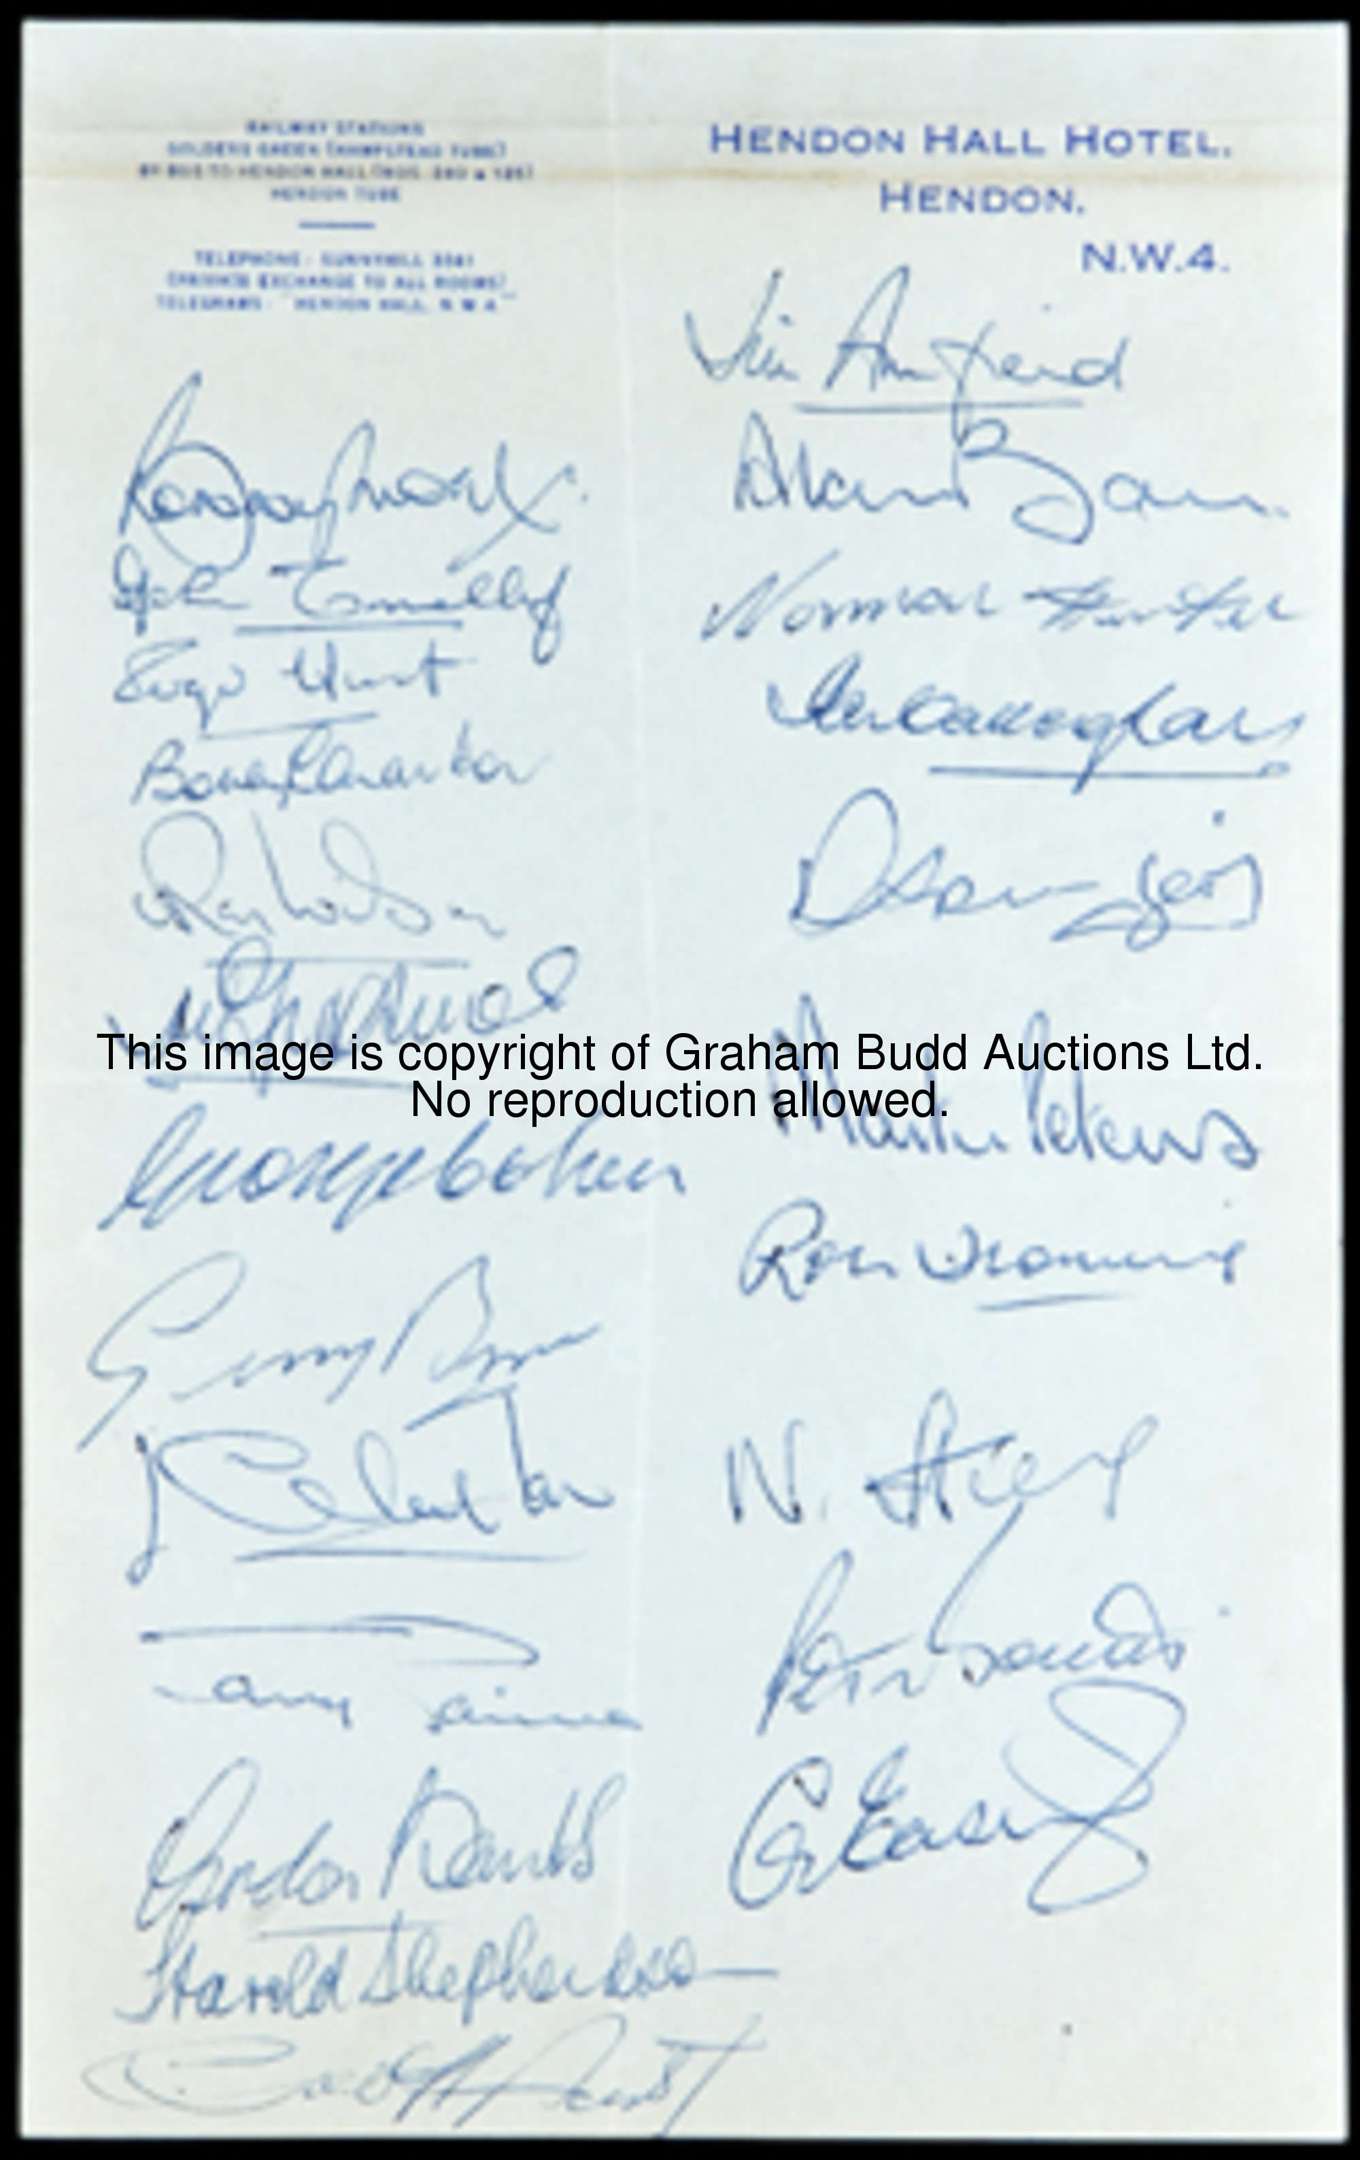 RAILWAY STATIONS
GOLDERS GREEN (HAMPSTEAD TUBE)
BY BUS TO HENDON HALL (NOS.
HENDON TUBE
TELEPHONE - SUNNYHILL
EXCHANGE TO ALL ROOMS)
TELEGRAMS - "HENDON HALL, N.W.4"
HENDON HALL HOTEL.
HENDON.
N.W.4.
Jim Armfield
Alan Ball
Norman Hunter
Ian Callaghan
Martin Peters
Ron
N. Stiles
Peter Bonetti
G. Eastham
John Connelly
Roger Hunt
Bobby Charlton
Ray Wilson
This image is copyright of Graham Budd Auctions Ltd.
No reproduction allowed.
George Cohen
Gerry Byrne
J Charlton
Terry Paine
Gordon Banks
Harold Shepherdson
Geoff Hurst